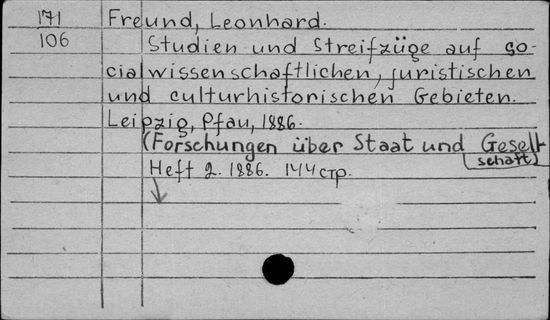 171
106
Freund, Leonhard.
Studien und Streifzüge auf so-
cialwissenschaftlichen, juristischen
und culturhistorischen Gebieten.
Leipzig, Pfau, 1886.
(Forschungen über Staat und Gesell-
schaft)
Heft 2. 1886. 144 стр.